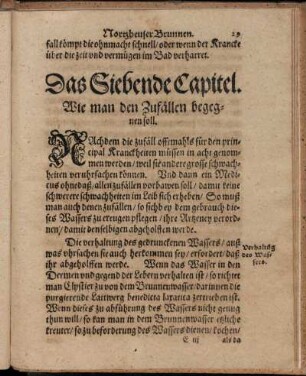 Nortzheuser Brunnen. 29
fall kömpt die ohnmacht schnell/ oder wenn der Krancke
über die zeit und vermögen im Bad verharret.
Das Siebende Capitel.
Wie man den Zufällen begeg-
nen soll.
NAchdem die zufäll offtmahls für den prin-
cipal Kranckheiten müssen in acht genom-
men werden/ weil sie andere grosse schwach-
heiten veruhrsachen können. Und dann ein Medi-
cus ohne das/ allen zufällen vorbawen soll/ damit keine
schwerere schwachheiten im Leib sich erheben/ So muß
man auch denen zufällen/ so sich bey dem gebrauch die-
ses Wassers zu erzeugen pflegen/ ihre Artzeney verord-
nen/ damit denselbigen abgeholffen werde.
Die verhaltung des getrunckenen Wassers/ auß
was uhrsachen sie auch herkommen sey/ erfordert/ daß
ihr abgeholffen werde. Wenn das Wasser in den
Dermen und gegend der Lebern verhalten ist/ so richtet
man Clystier zu von dem Brunnenwasser/ darinnen die
purgierende Lattwerg benedicta laxativa zertrieben ist.
Wenn dieses zu abführung des Wassers nicht genug
thun will/ so kan man in dem Brunnenwasser etzliche
kreuter/ so zu beforderung des Wassers dienen/ kochen/
Verhaltung
des Was-
sers.
E iij als da